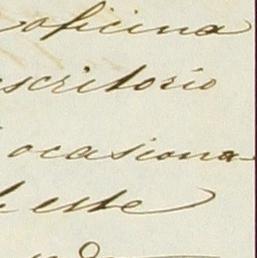 oficina
escritorio
ocasiona
este